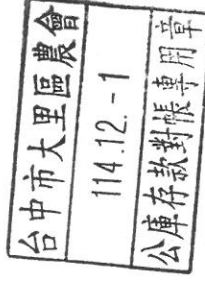 台中市大里區農會
114.12.-1
公庫存款對帳專用章